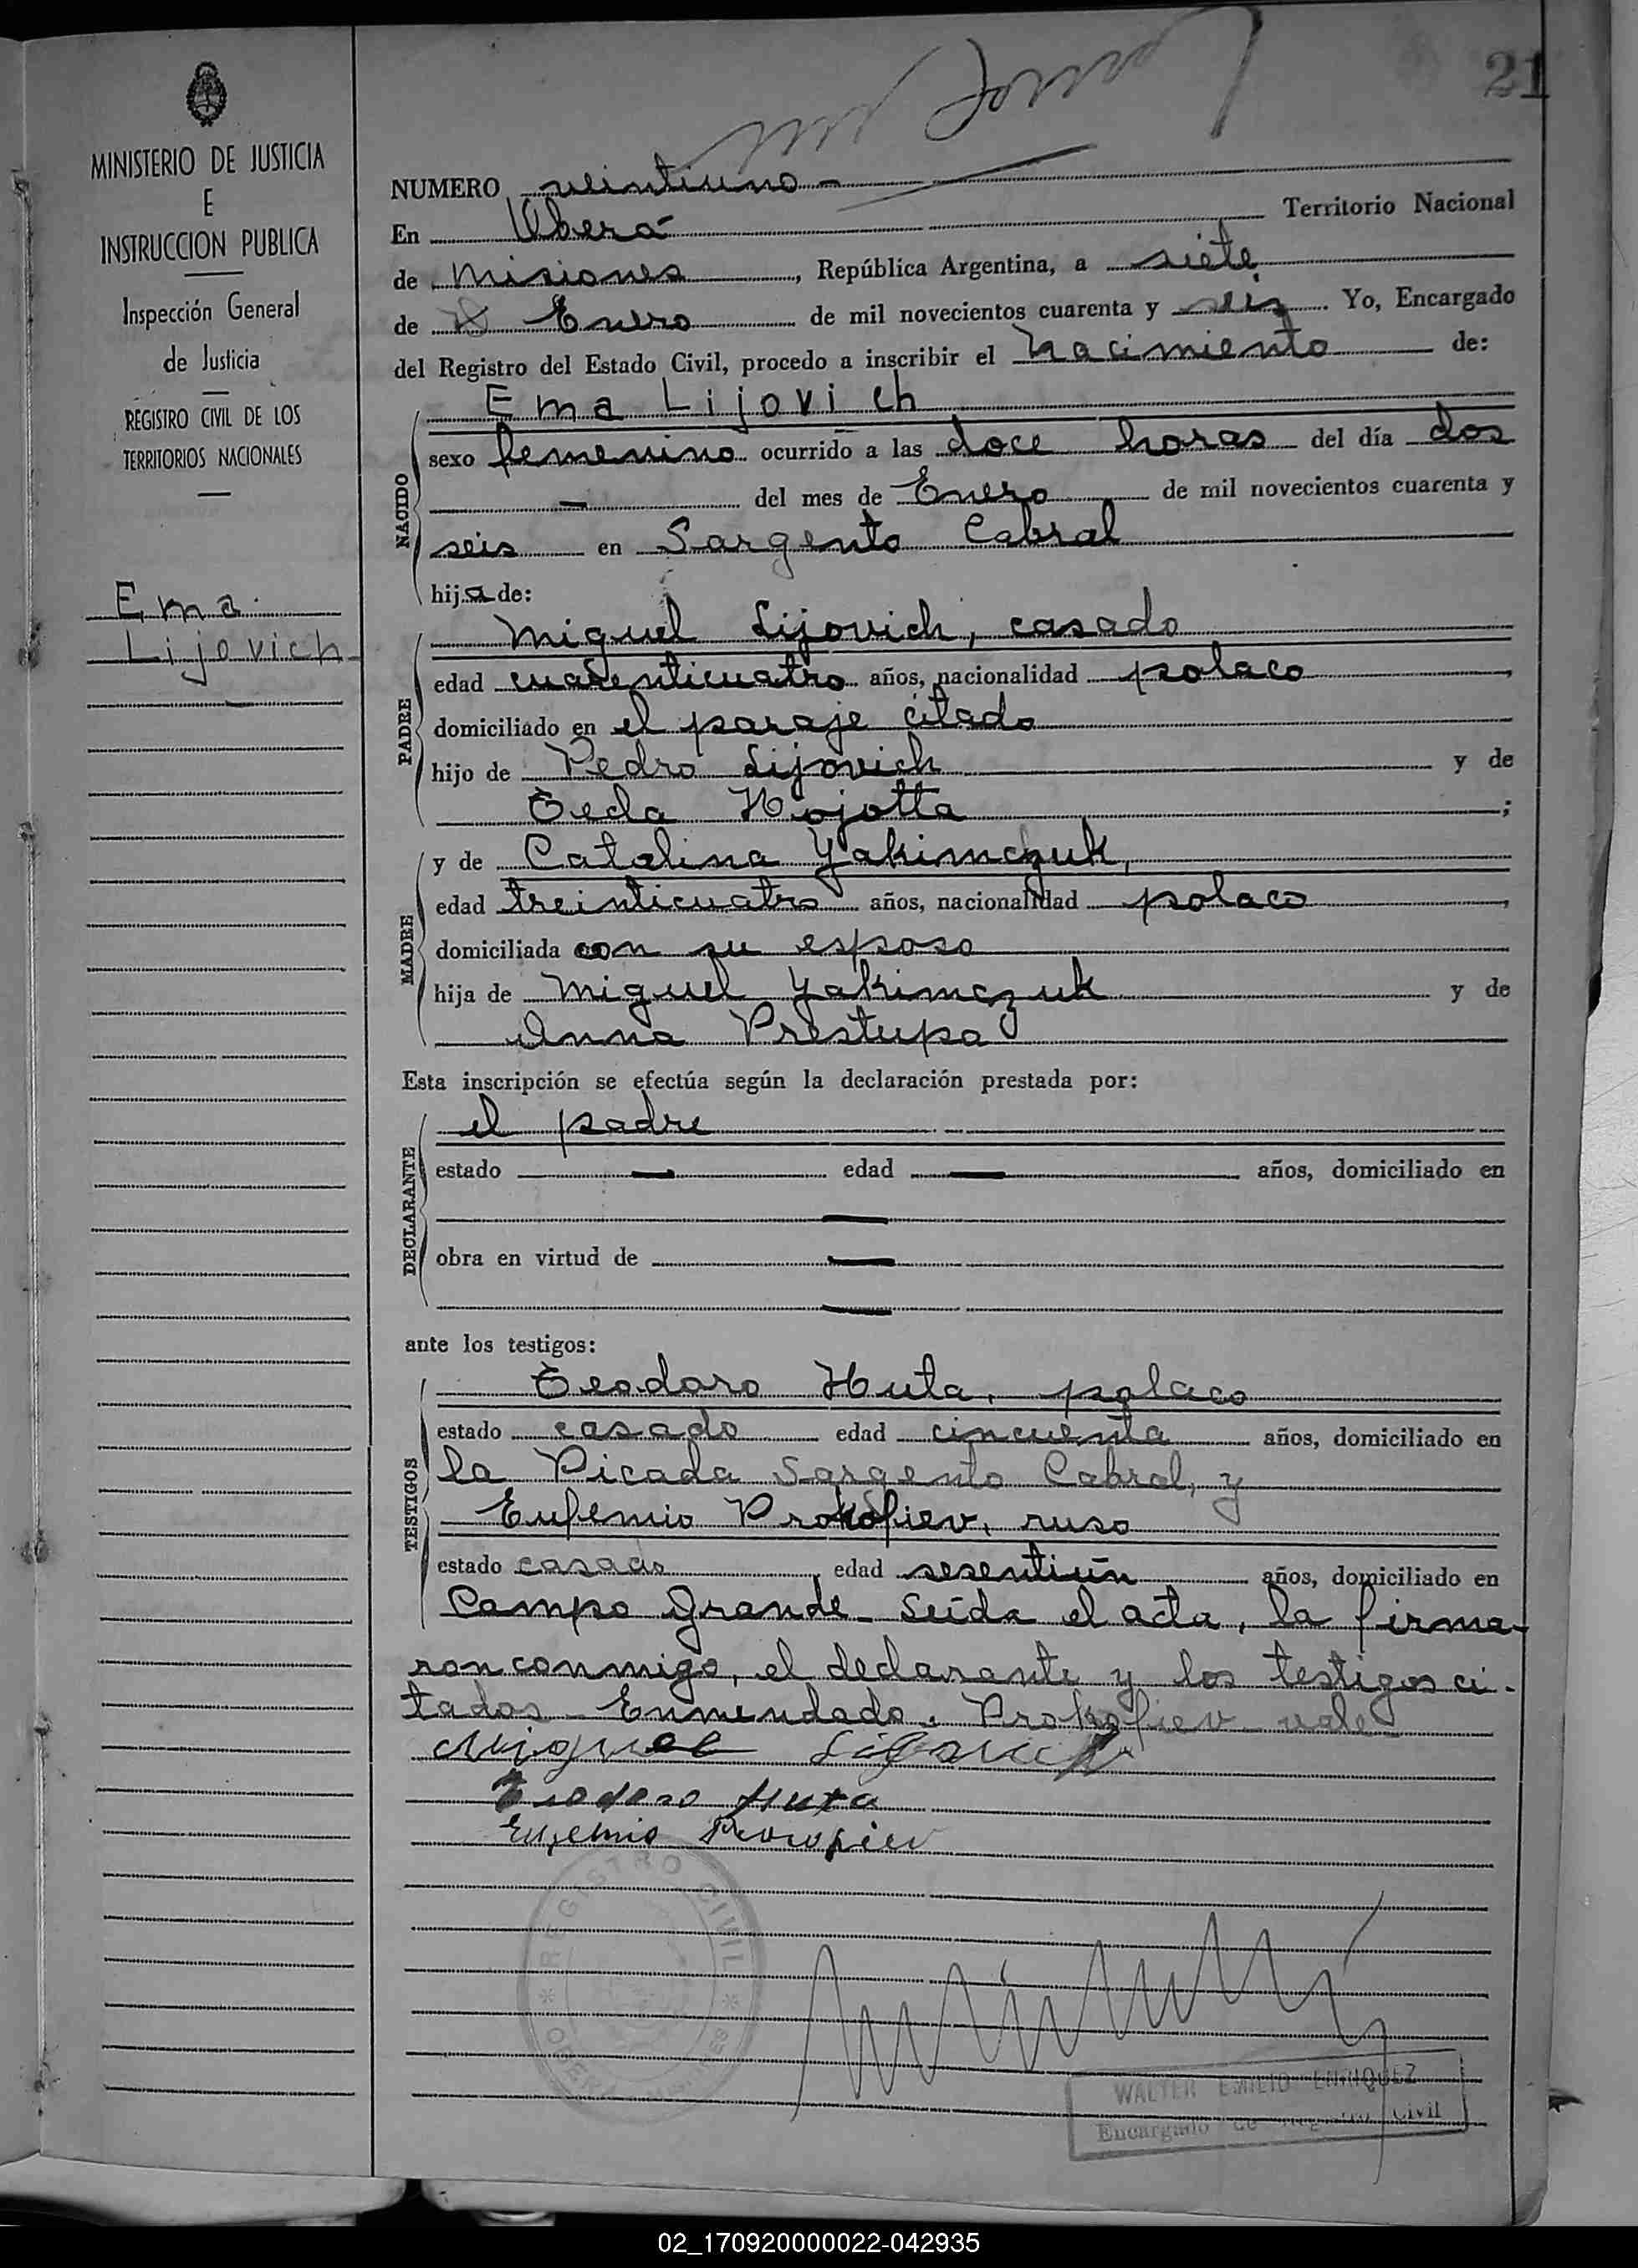 21
MINISTERIO DE JUSTICIA
E
INSTRUCCION PUBLICA
Inspección General
de Justicia
REGISTRO CIVIL DE LOS
TERRITORIOS NACIONALES
Ema
Lijovich
NUMERO veintiuno
En Oberá Territorio Nacional
de Misiones, República Argentina, a siete
de Enero de mil novecientos cuarenta y seis. Yo, Encargado
del Registro del Estado Civil, procedo a inscribir el nacimiento de:
NACIDO
Ema Lijovich
sexo femenino ocurrido a las doce horas del día dos
— del mes de Enero de mil novecientos cuarenta y
seis en Sargento Cabral
hija de:
PADRE
Miguel Lijovich, casado
edad cuarenticuatro años, nacionalidad polaco,
domiciliado en el paraje citado
hijo de Pedro Lijovich y de
Teda Hojotta;
MADRE
y de Catalina Yakimczuk,
edad treinticuatro años, nacionalidad polaco,
domiciliada con su esposo
hija de Miguel Yakimczuk y de
Anna Prestupa
Esta inscripción se efectúa según la declaración prestada por:
DECLARANTE
el padre
estado — edad — años, domiciliado en
—
obra en virtud de —
—
ante los testigos:
TESTIGOS
Teodoro Huta, polaco
estado casado edad cincuenta años, domiciliado en
la Picada Sargento Cabral, y
Eufemio Prokofiev, ruso
estado casado, edad sesentiún años, domiciliado en
Campo Grande_ Leída el acta, la firma-
ron conmigo, el declarante y los testigos ci-
tados_ Enmendado: Prokofiev_ vale
Miguel Lijovich
Teodoro Huta
Eufemio Procopiev
REGISTRO CIVIL
OBERÁ
WALTER EMILIO ENRIQUEZ
Encargado de Registro Civil
02_170920000022-042935